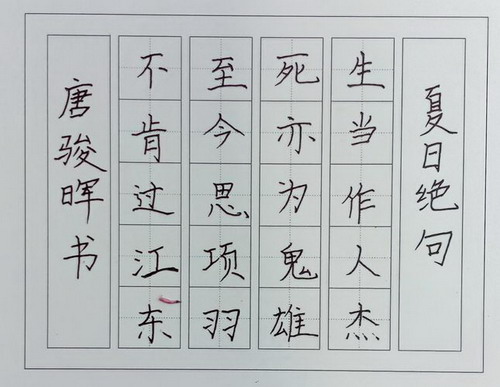 夏日绝句
生当作人杰
死亦为鬼雄
至今思项羽
不肯过江东
唐骏晖书